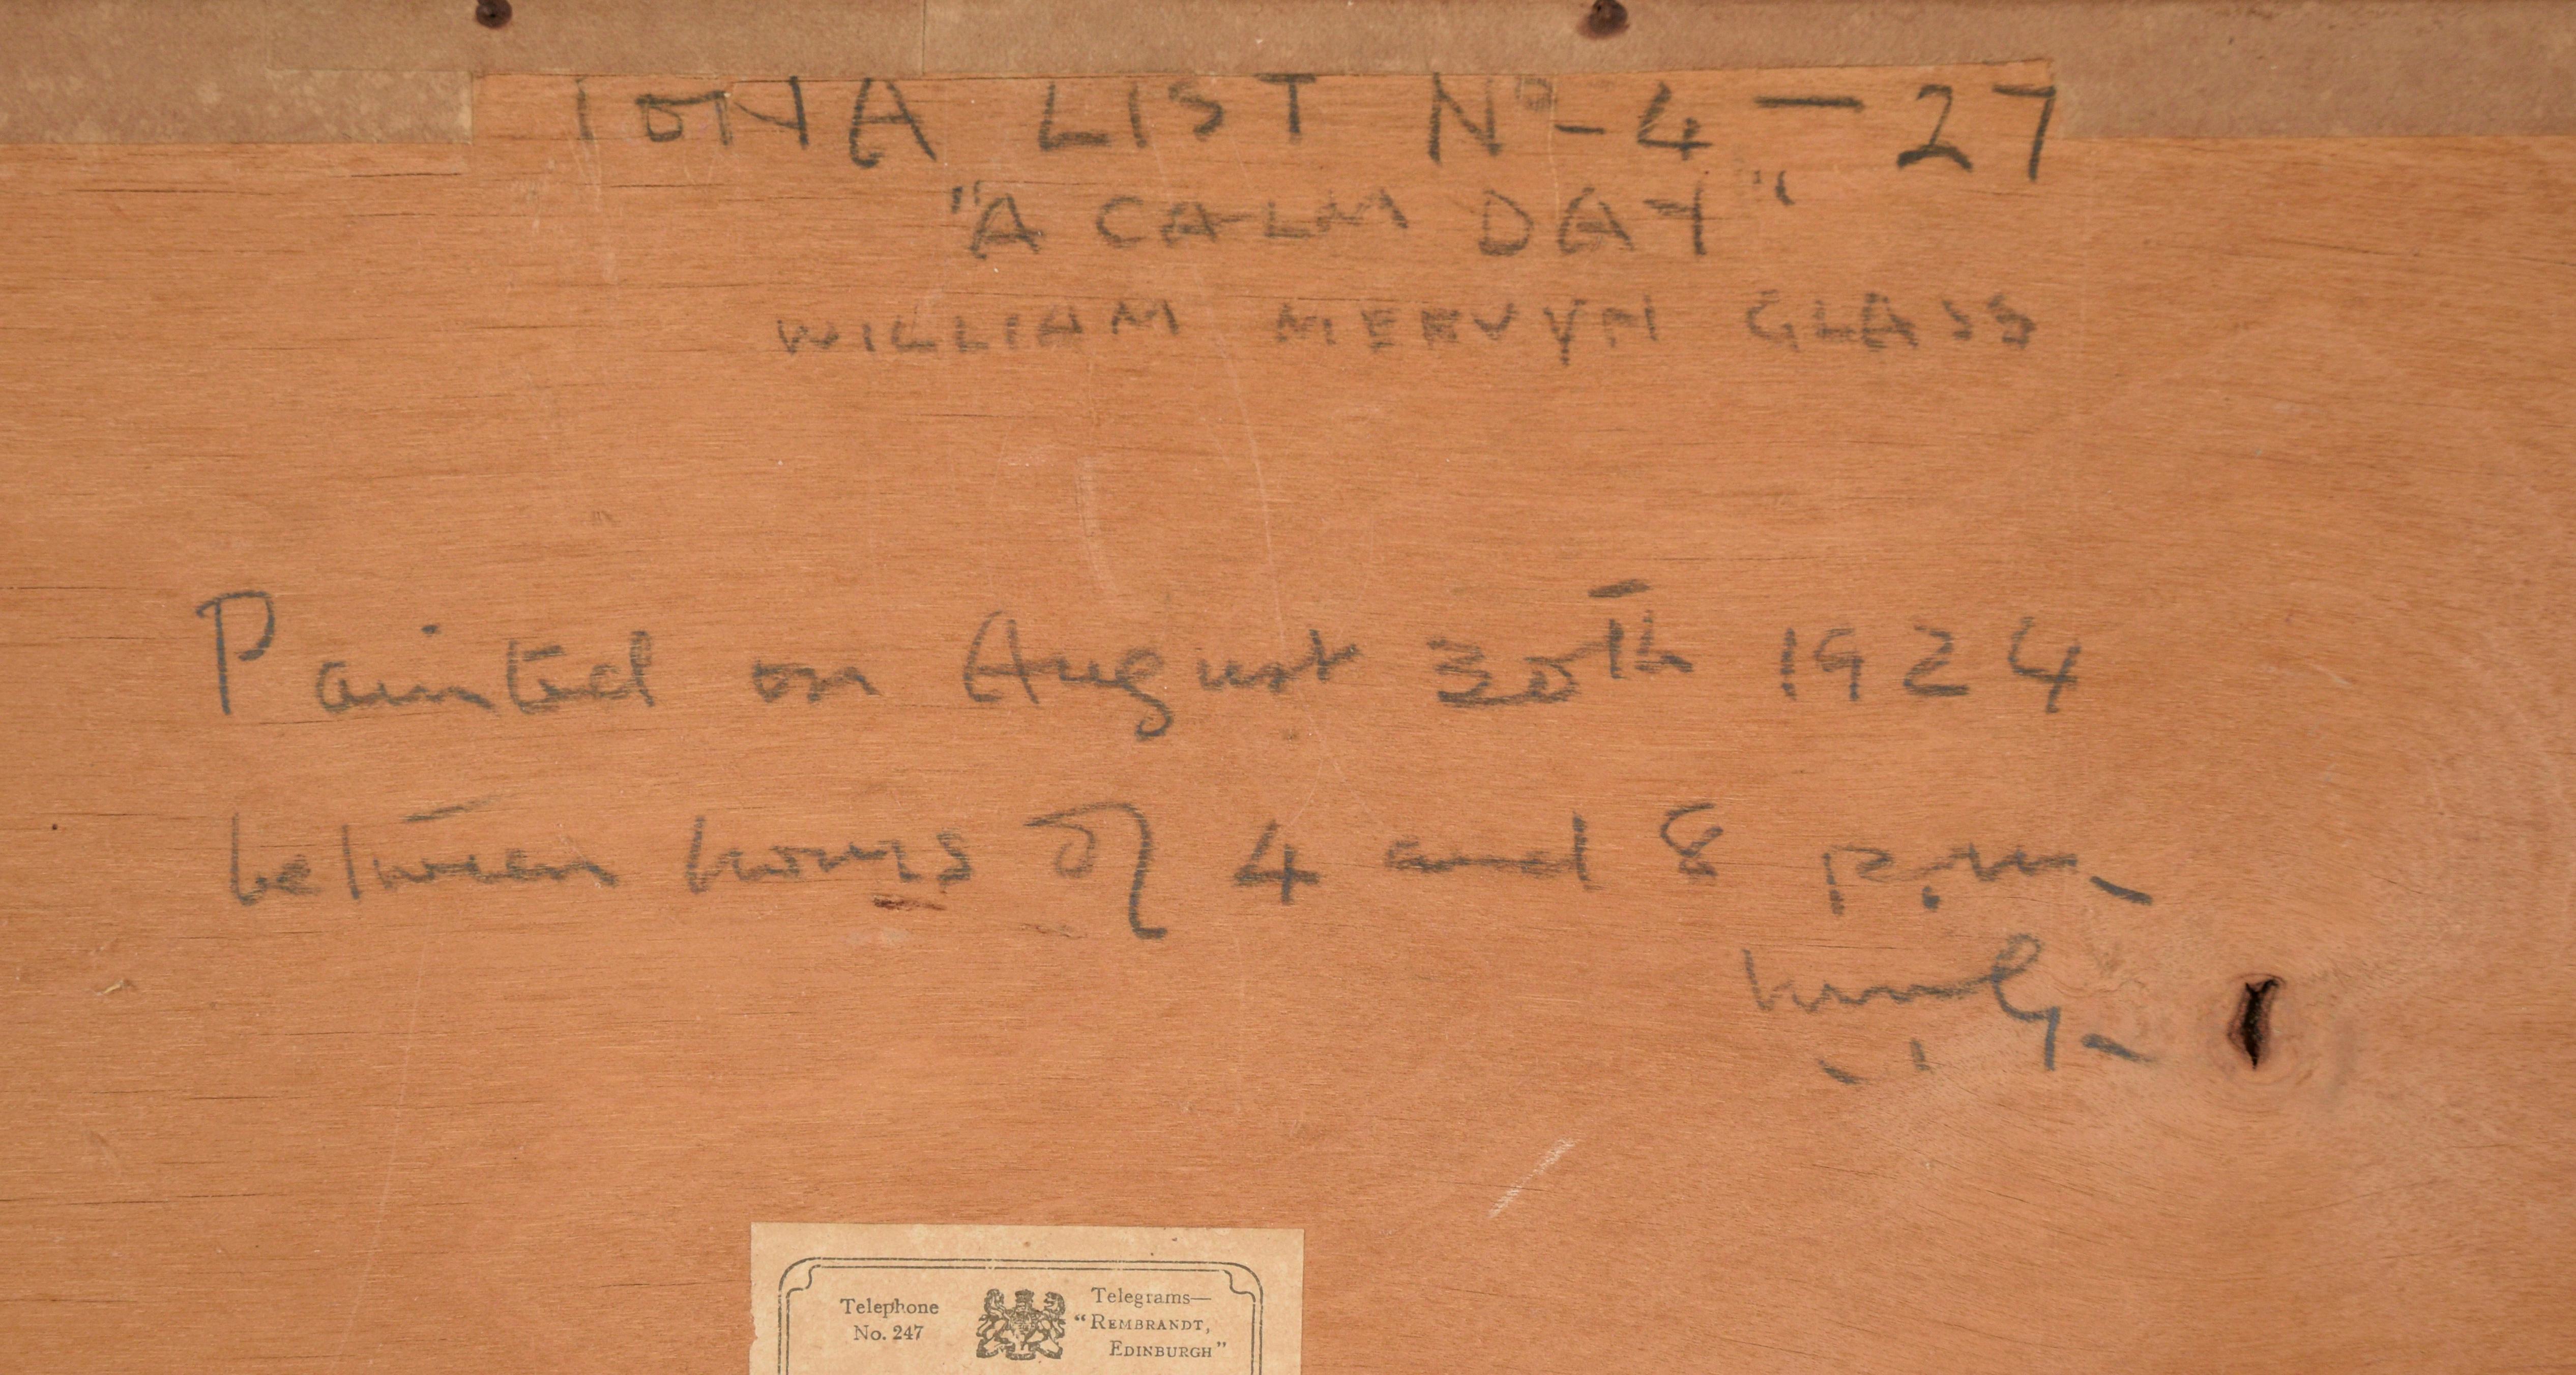 IONA LIST No - 4 — 27
"A CALM DAY"
WILLIAM MERVYN GLASS
Painted on August 30th 1924
between hours of 4 and 8 p.m.
Telephone
No. 247
Telegrams—
"REMBRANDT,
EDINBURGH"